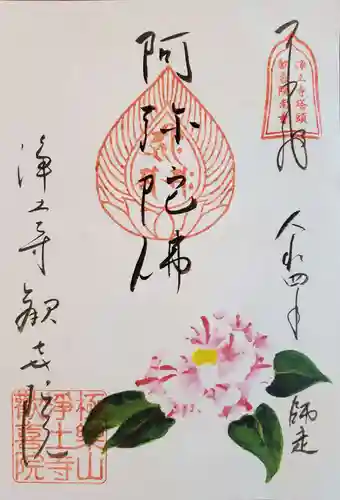 令和四年
師走
阿弥陀佛
浄土寺
歓喜院
浄土寺塔頭
極樂山
淨土寺
歡喜院